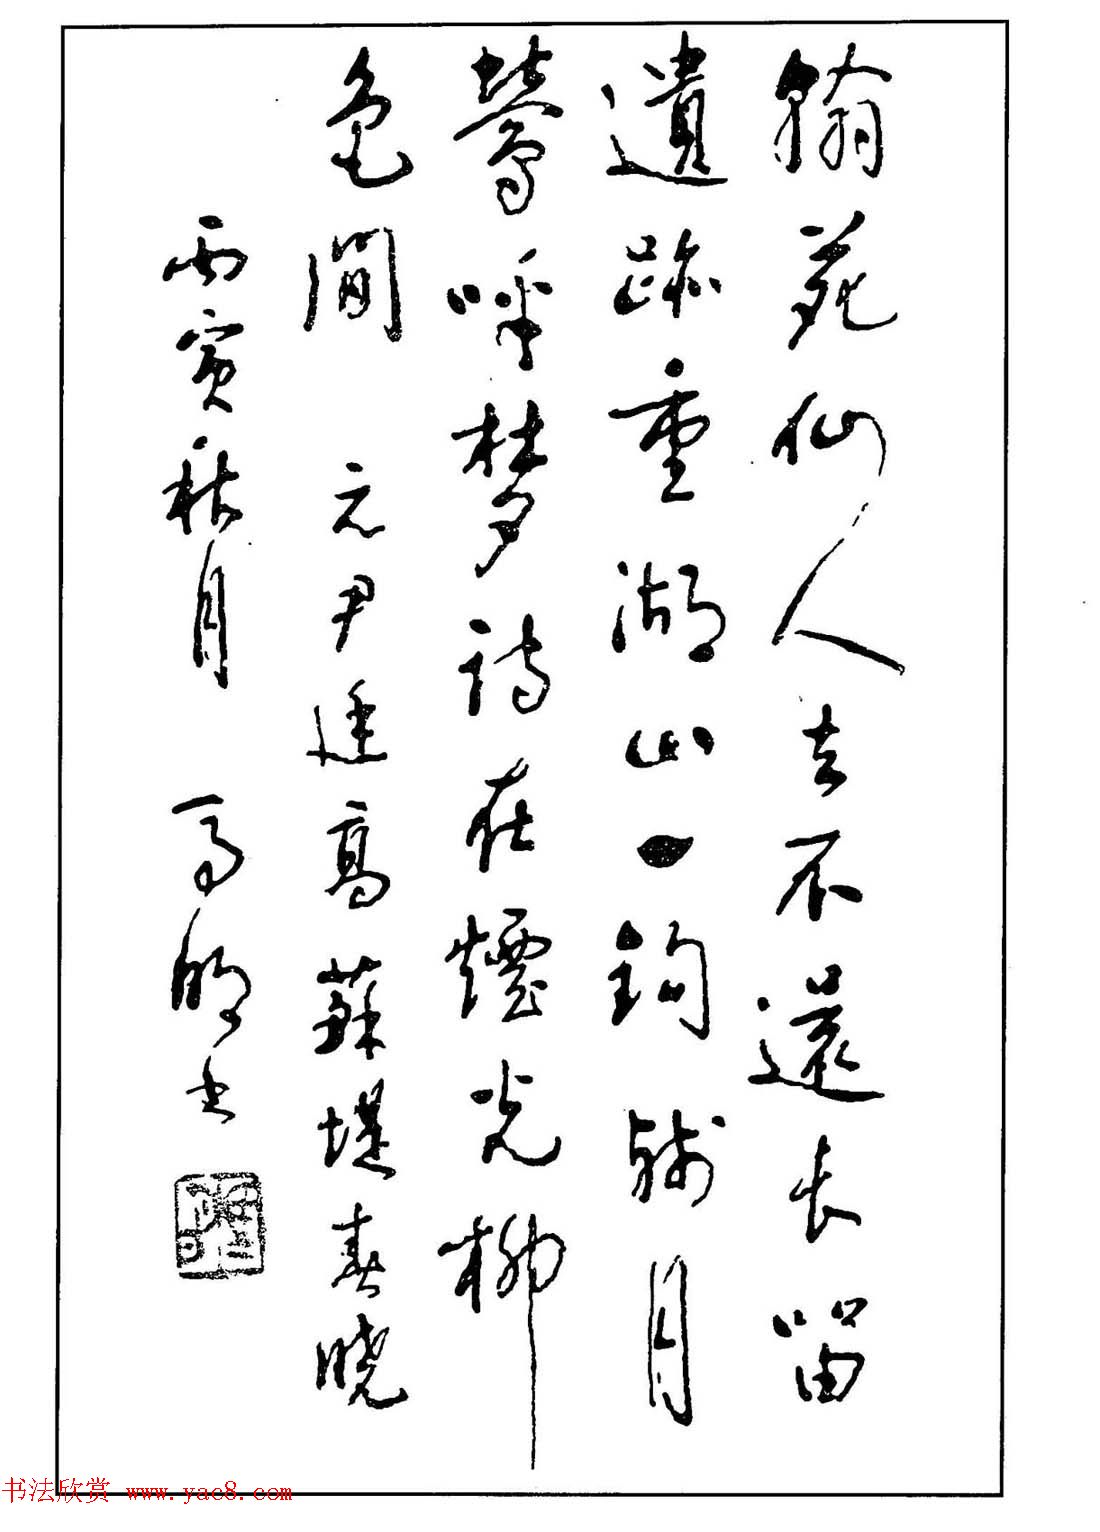 翰苑仙人去不還長留
遺跡重湖山一鉤殘月
鶯呼夢詩在煙光柳
色間 元尹廷高蘇堤春晓
丙寅秋月 書
书法欣赏 www.yac8.com